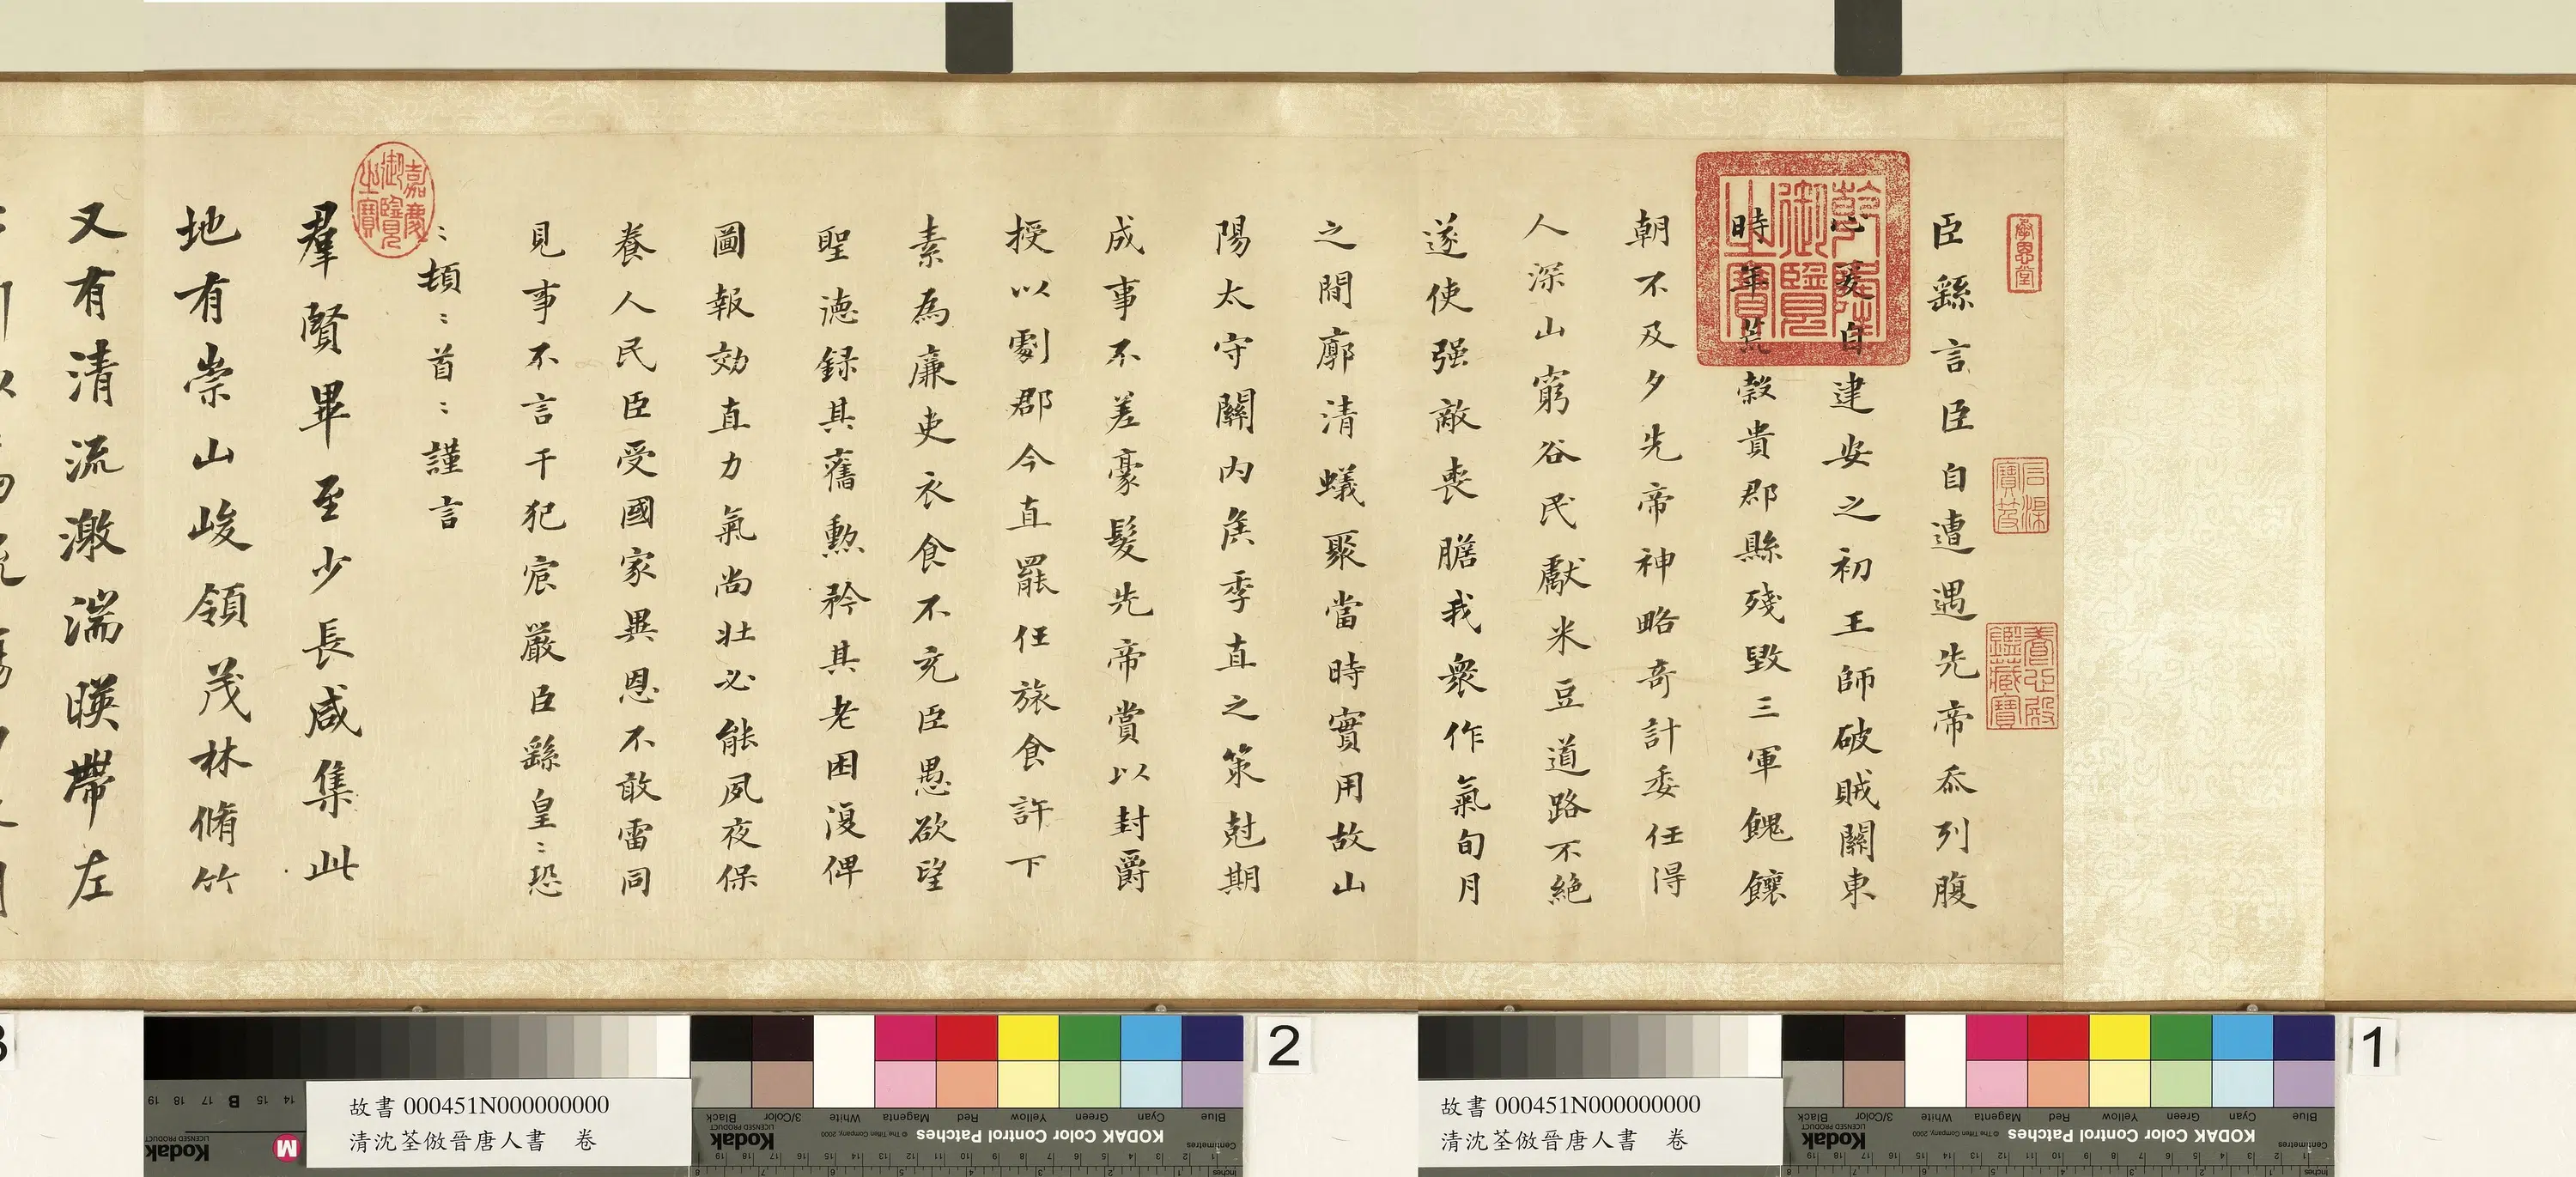 臣繇言臣自遭遇先帝忝列腹
心爰自建安之初王師破賊關東
時年荒穀貴郡縣殘毀三軍餽饟
朝不及夕先帝神略奇計委任得
人深山窮谷民獻米豆道路不絕
遂使强敵喪膽我衆作氣旬月
之間廓清蟻聚當時實用故山
陽太守關內侯季直之策尅期
成事不差豪髮先帝賞以封爵
授以劇郡今直罷任旅食許下
素為廉吏衣食不充臣愚欲望
聖德録其舊勲矜其老困復俾
圖報効直力氣尚壯必能夙夜保
養人民臣受國家異恩不敢雷同
見事不言干犯宸嚴臣繇皇:恐
:頓:首:謹言
羣賢畢至少長咸集此
地有崇山峻領茂林脩竹
又有清流激湍暎帶左
乾隆御覽之寶
嘉慶御覽之寶
石渠寶笈
養心殿鑑藏寶
故書 000451N000000000
清沈荃倣晉唐人書 卷
故書 000451N000000000
清沈荃倣晉唐人書 卷
3
2
1
KODAK Color Control Patches
Kodak
LICENSED PRODUCT
© The Tiffen Company, 2000
Blue Cyan Green Yellow Red Magenta White 3/Color Black
Centimetres
Inches
KODAK Color Control Patches
Kodak
LICENSED PRODUCT
© The Tiffen Company, 2000
Blue Cyan Green Yellow Red Magenta White 3/Color Black
Centimetres
Inches
Kodak
LICENSED PRODUCT
M
B